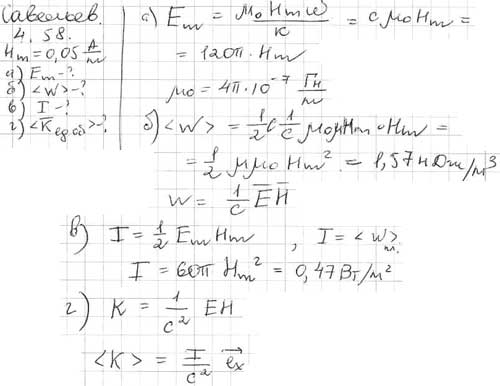 Савельев.
4.58.
Hm = 0,05 А/м
а) Em - ?
б) <w> - ?
в) I - ?
г) <K̄ ед.об> - ?
а) Em = μ₀ Hm ω / k = c μ₀ Hm =
= 120π · Hm
μ₀ = 4π · 10⁻⁷ Гн/м
б) <w> = 1/2 c 1/c μ₀μ Hm · Hm =
= 1/2 μμ₀ Hm² = 1,57 нДж/м³
w = 1/c E̅ H̅
в) I = 1/2 Em Hm , I = <w> пл.
I = 60π Hm² = 0,47 Вт/м²
г) K = 1/c² EH
<K> = I/c² e⃗x